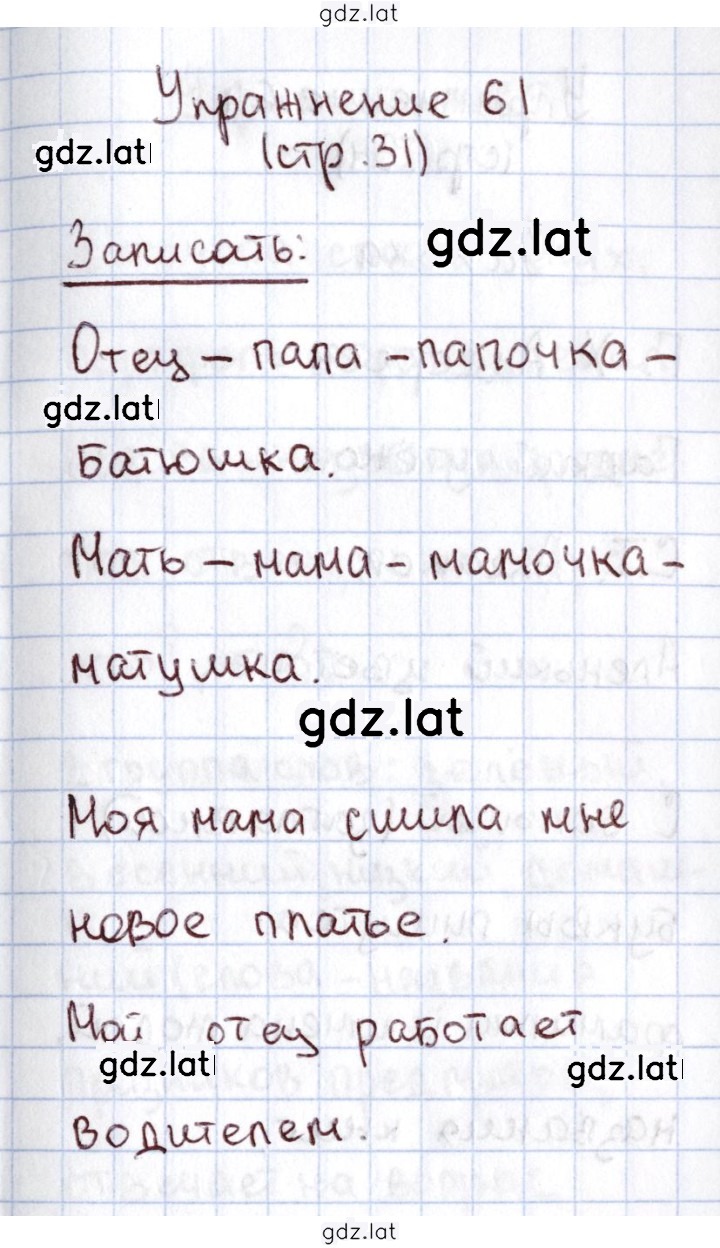 gdz.lat
Упражнение 61
gdz.lat
(стр.31)
Записать:
gdz.lat
Отец – папа – папочка –
gdz.lat
батюшка.
Мать – мама – мамочка –
матушка.
gdz.lat
Моя мама сшила мне
новое платье.
Мой отец работает
gdz.lat
gdz.lat
водителем.
gdz.lat